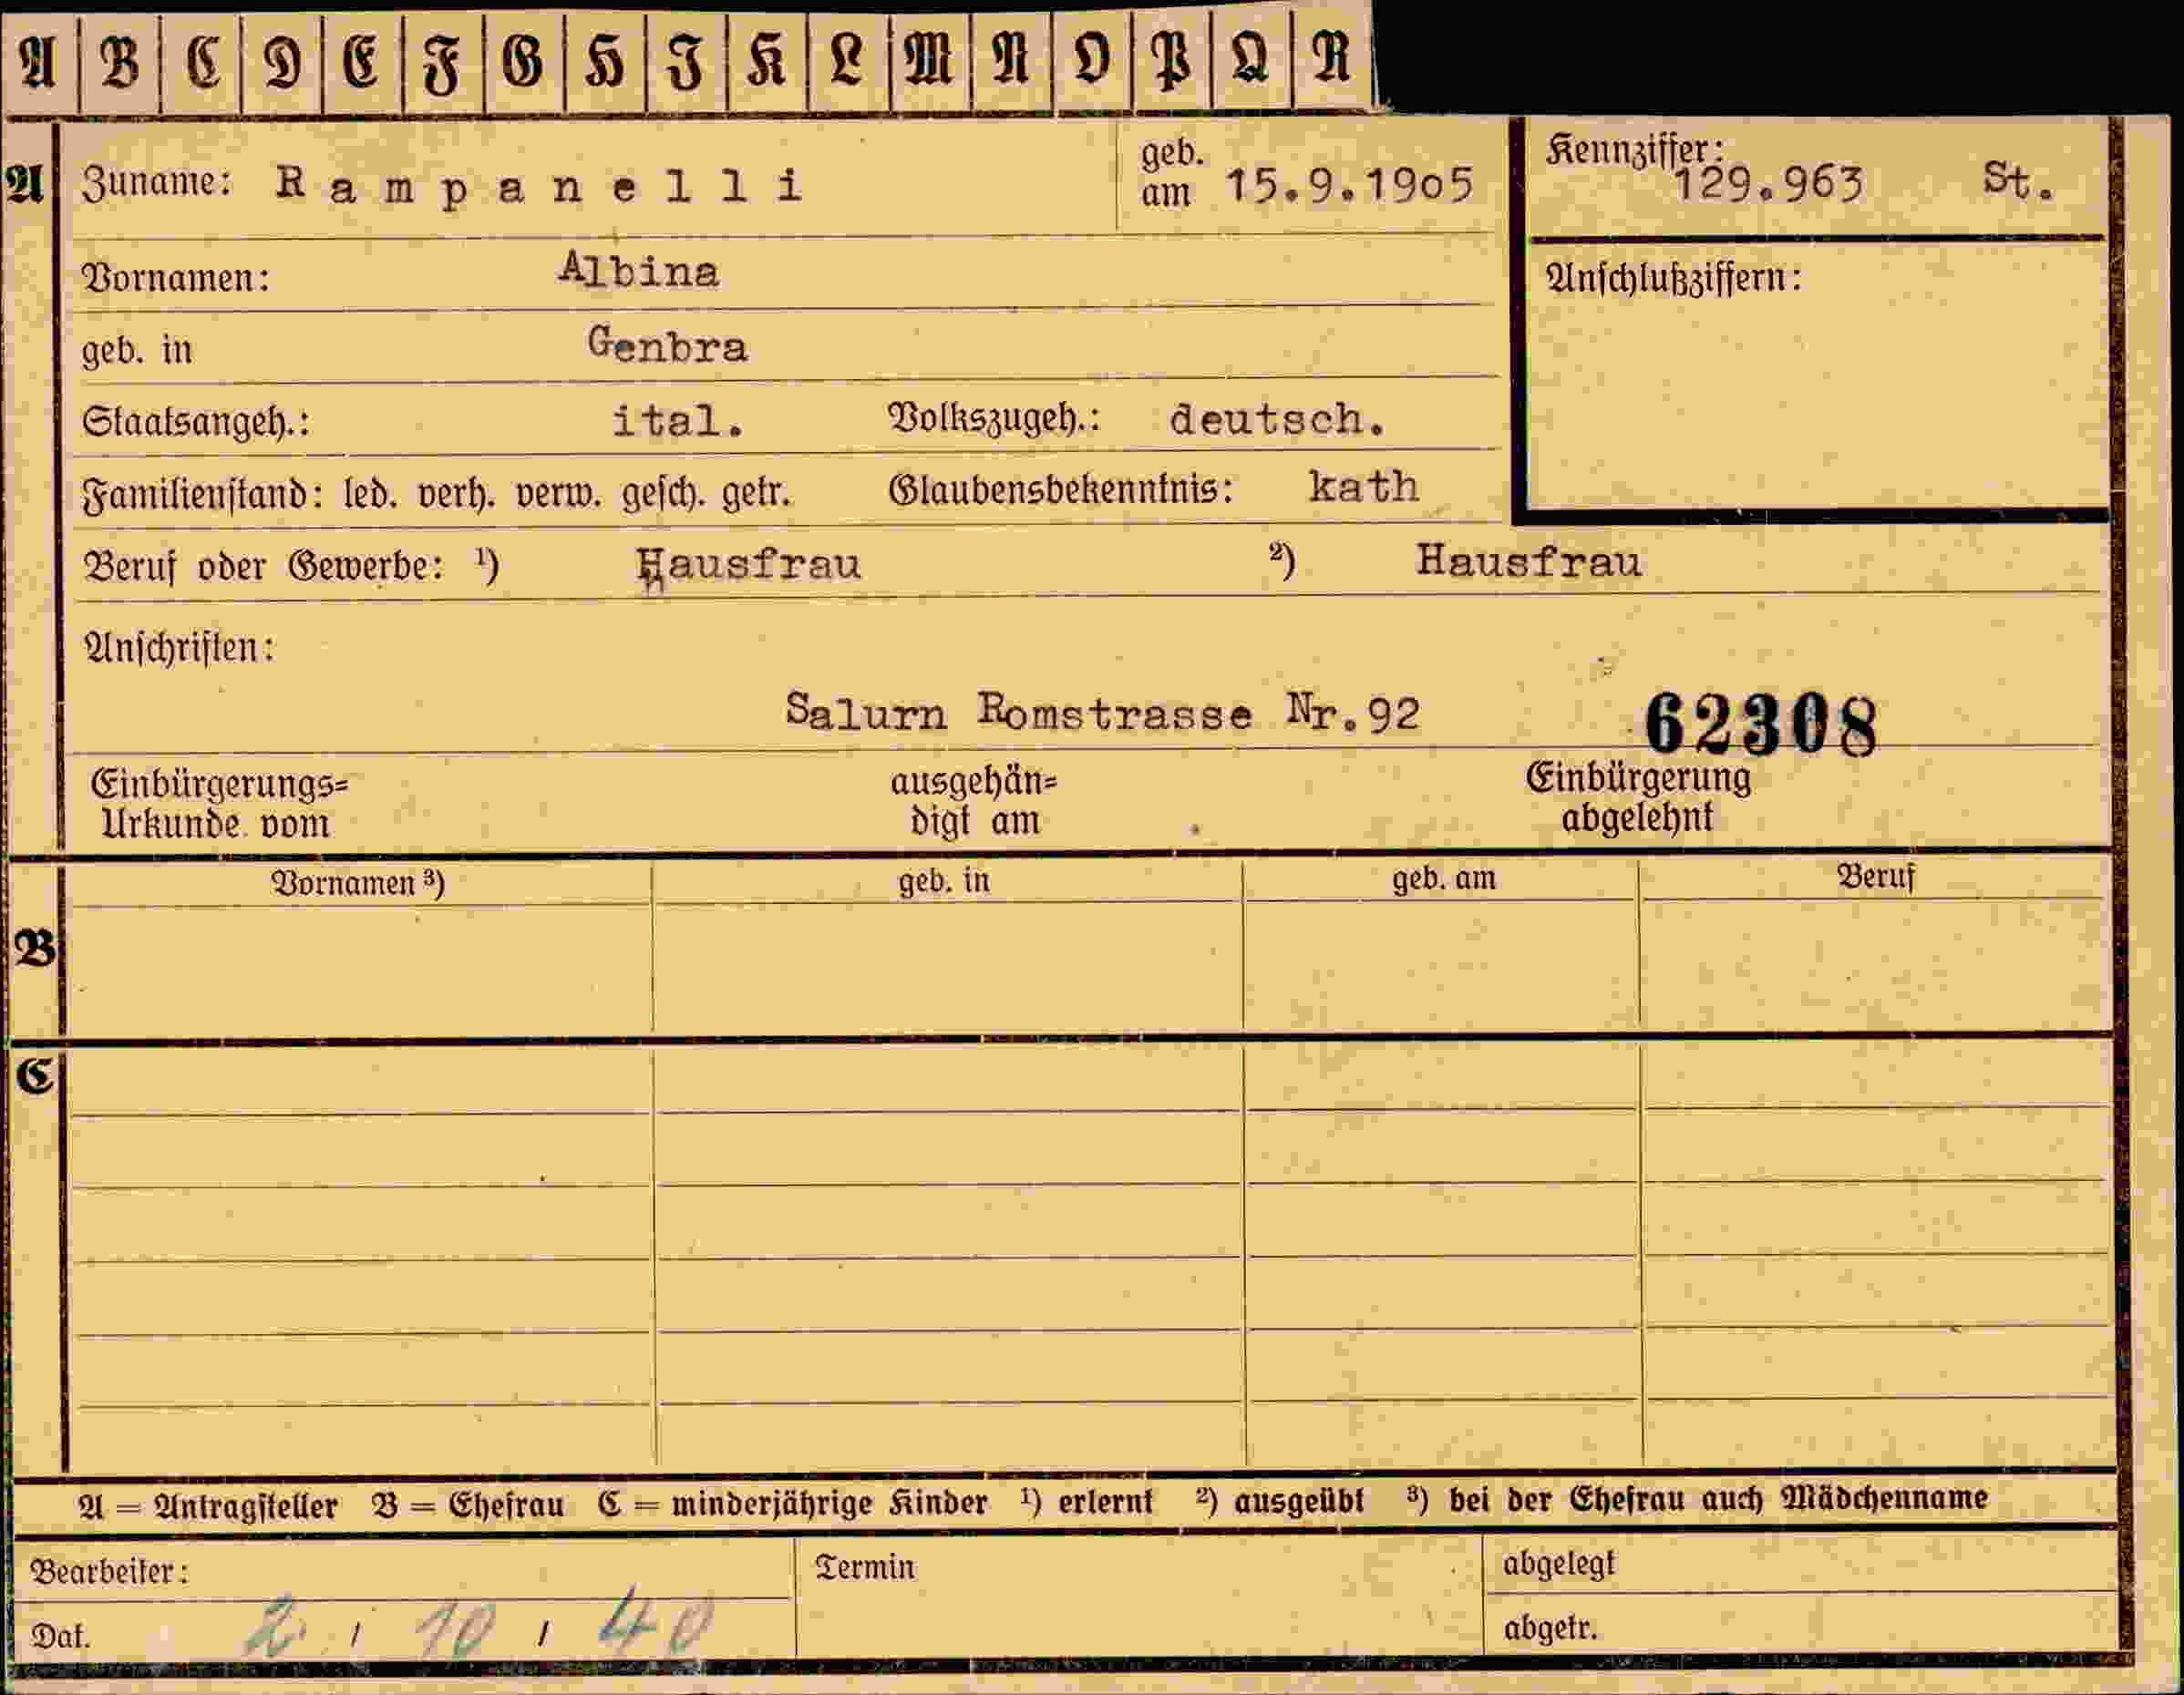 A B C D E F G H I K L M N O P Q R
A Zuname: Rampanelli geb. am 15.9.1905 Kennziffer: 129.963 St.
Vornamen: Albina Anschlußziffern:
geb. in Genbra
Staatsangeh.: ital. Volkszugeh.: deutsch.
Familienstand: led. verh. verw. gesch. getr. Glaubensbekenntnis: kath
Beruf oder Gewerbe: ¹) Hausfrau ²) Hausfrau
Anschriften:
Salurn Romstrasse Nr.92 62308
Einbürgerungs= ausgehän= Einbürgerung
Urkunde vom digt am abgelehnt
Vornamen ³) geb. in geb. am Beruf
B
C
A = Antragsteller B = Ehefrau C = minderjährige Kinder ¹) erlernt ²) ausgeübt ³) bei der Ehefrau auch Mädchenname
Bearbeiter: Termin abgelegt
Dat. 2 / 10 / 40 abgetr.